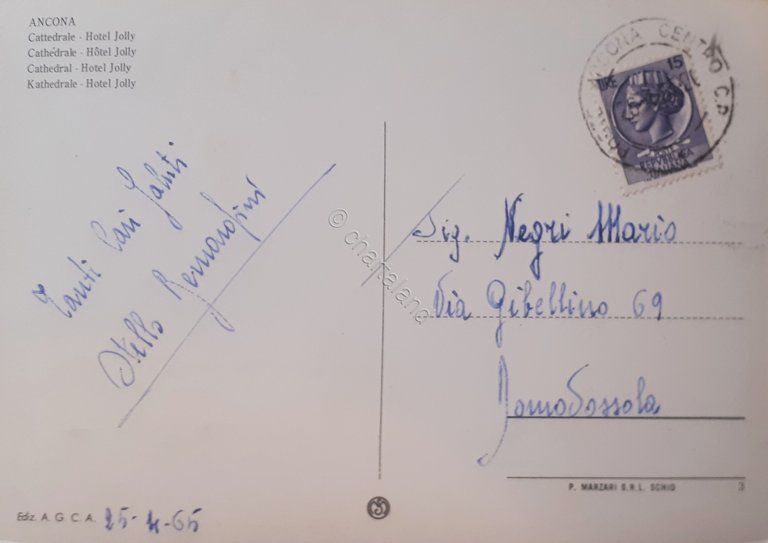 ANCONA
Cattedrale - Hotel Jolly
Cathédrale - Hôtel Jolly
Cathedral - Hotel Jolly
Kathedrale - Hotel Jolly
Tanti Cari Saluti
Stello
POSTE ANCONA CENTRO CP
LIRE 15
POSTE
REPVBBLICA
ITALIANA
Sig. Negri Mario
Via Gibellino 69
Domodossola
© chartaland
P. MARZARI S.R.L. SCHIO 3
Ediz. A. G. C. A. 25-4-65